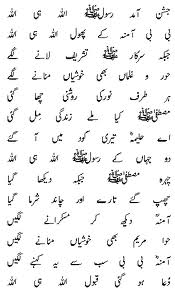 جشن آمد رسولﷺ اللہ ہی اللہ
بی بی آمنہ کے پھول اللہ ہی اللہ
جبکہ سرکارﷺ تشریف لانے لگے
حور و غلماں بھی خوشیاں منانے لگے
ہر طرف نور کی روشنی چھا گئی
مصطفٰیﷺ کیا ملے زندگی مل گئی
اے حلیمہؓ تیری گود میں آ گئے
دو جہاں کے رسولﷺ اللہ ہی اللہ
چہرہ مصطفٰیﷺ جبکہ دیکھا گیا
چھپ گئے تارے اور چاند شرما گیا
آمنہؓ دیکھ کر مسکرانے لگیں
حوا مریم بھی خوشیاں منانے لگیں
آمنہؓ بی بی سب سے یہ کہنے لگیں
دُعا ہو گئی قبول اللہ ہی اللہ